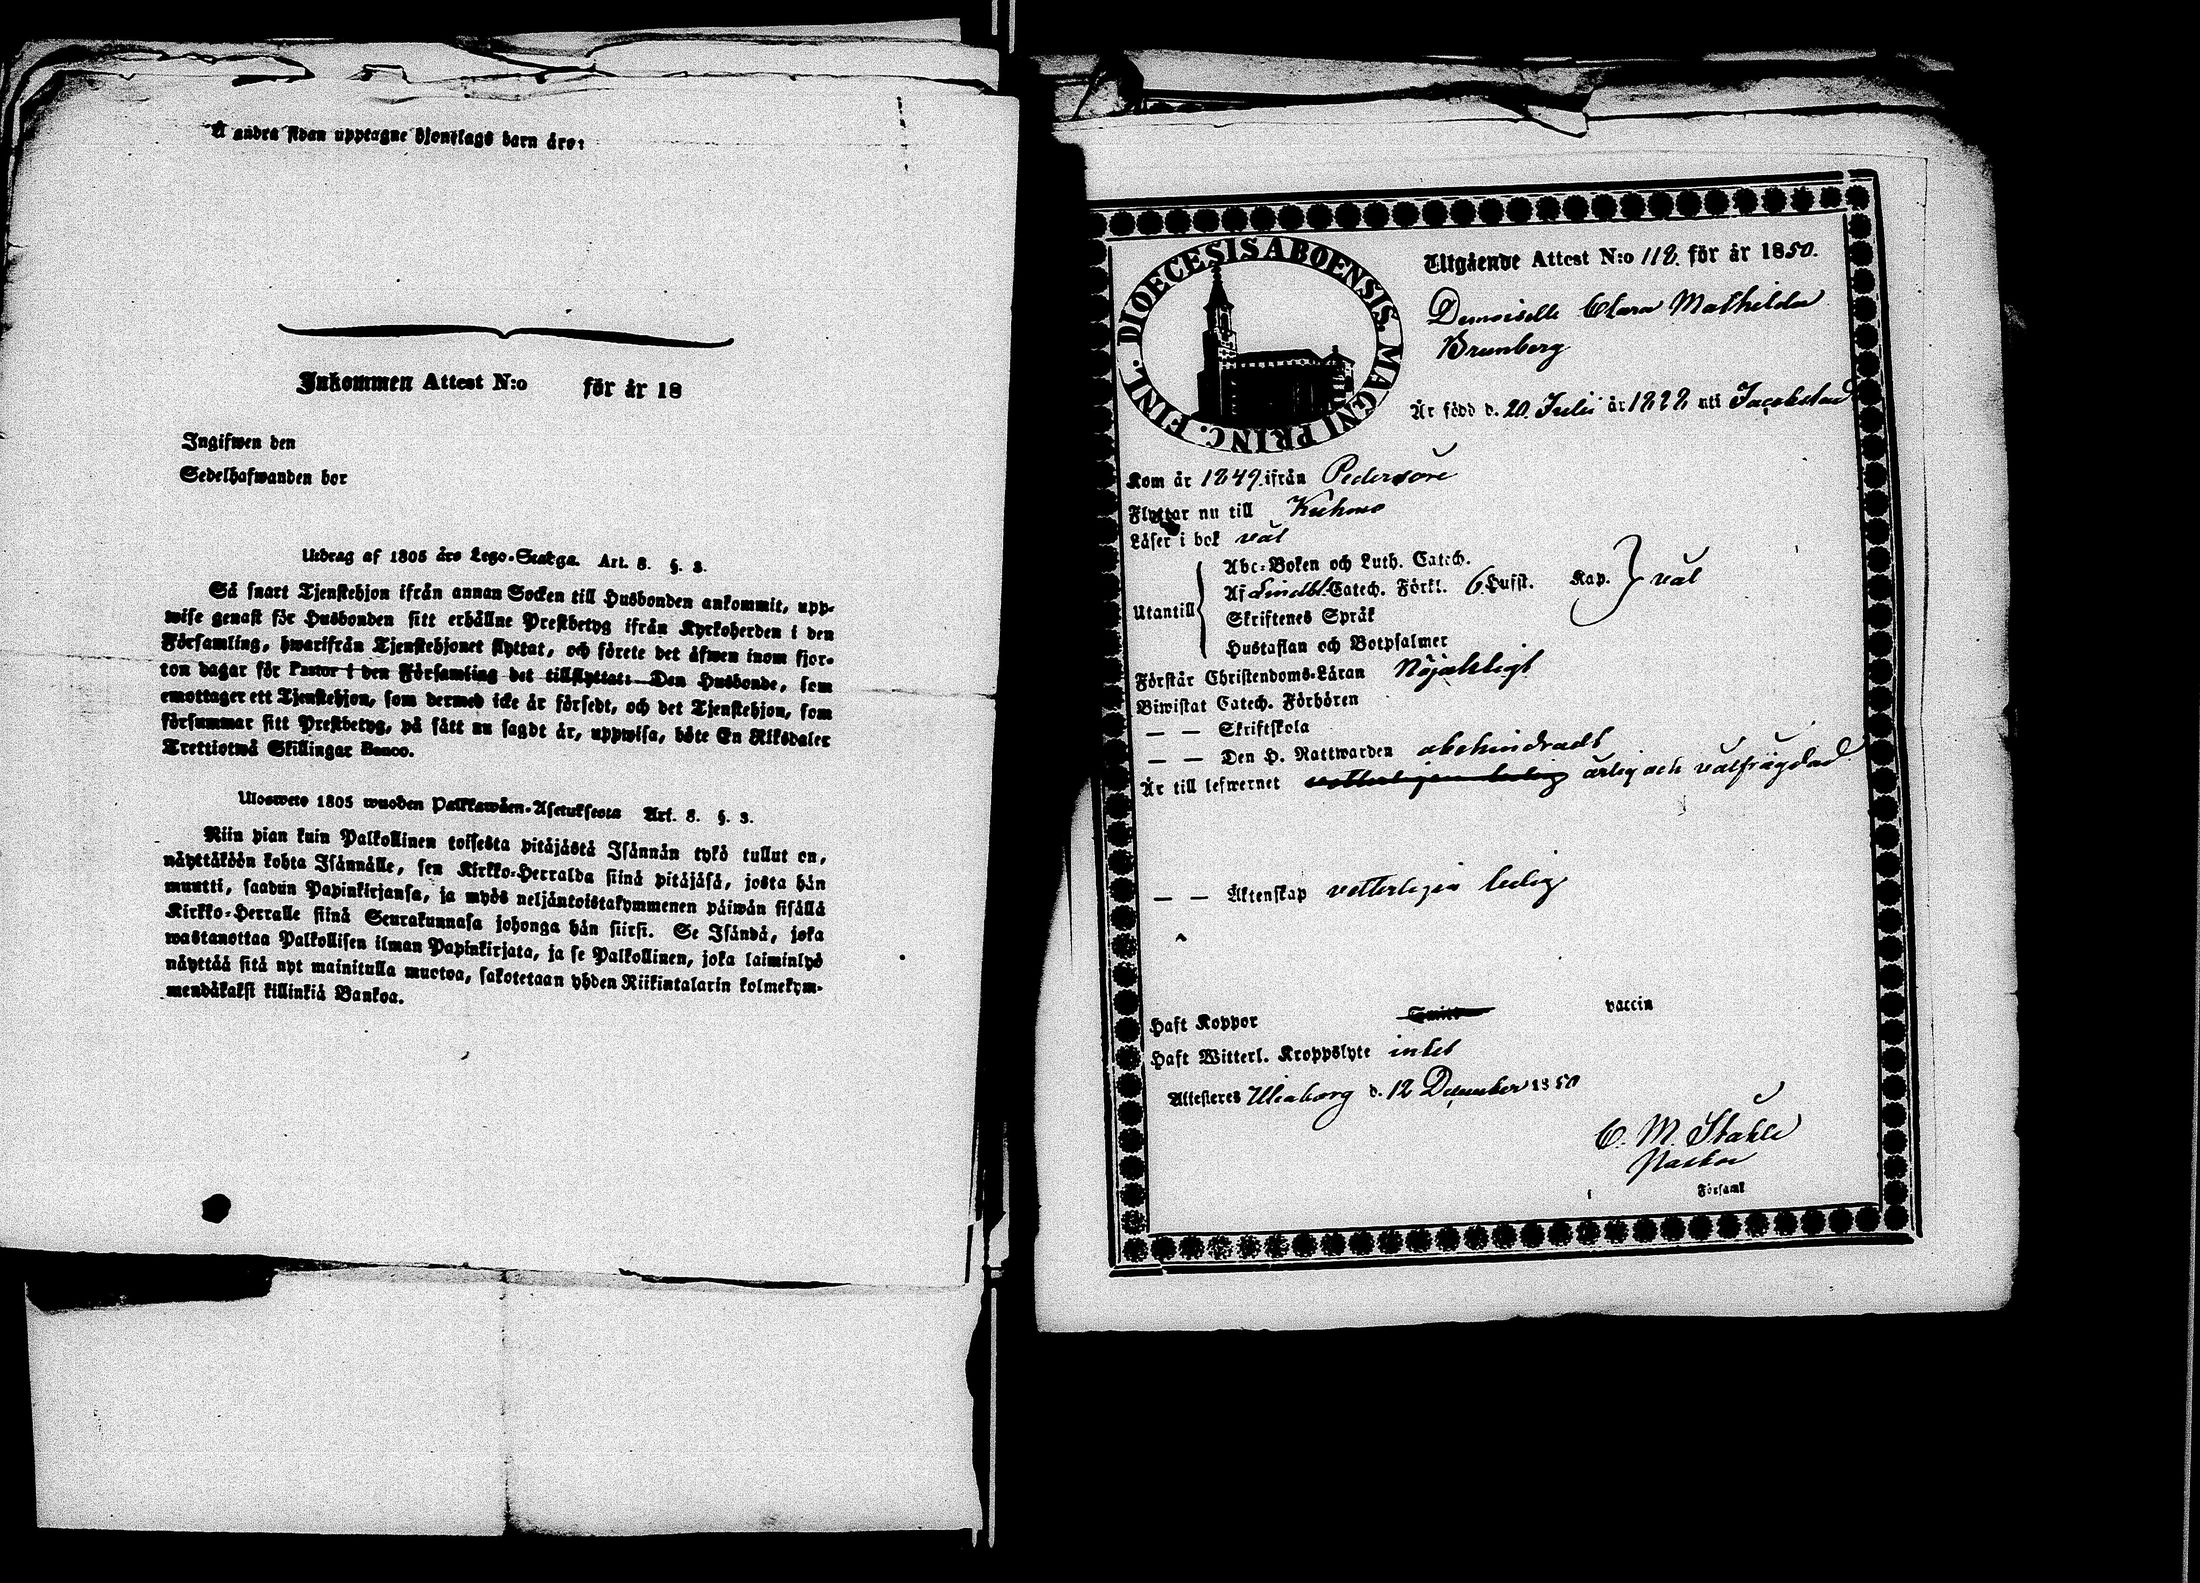 Å andra sidan upptagne hjonslags barn äro:
Inkommen Attest N:o för år 18
Ingifwen den
Sedelhafwanden bor
Utdrag af 1805 års Lego-Stadga. Art. 8. §. 3.
Så snart Tjenstehjon ifrån annan Socken till Husbonden ankommit, upp-
wise genast för Husbonden sitt erhållne Prestbetyg ifrån Kyrkoherden i den
Församling, hwarifrån Tjenstehjonet flyttat, och förete det äfwen inom fjor-
ton dagar för Pastor i den Församling det tillflyttat: Den Husbonde, som
emottager ett Tjenstehjon, som dermed icke är försedt, och det Tjenstehjon, som
försummar sitt Prestbetyg, på sätt nu sagdt är, uppwisa, böte En Riksdaler
Trettiotwå Skillingar Banco.
Ulosweto 1805 wuoden Palkkawäen-Asetuksesta Art. 8. §. 3.
Niin pian kuin Palkollinen toisesta pitäjästä Isännän tykö tullut on,
näyttäköön kohta Isännälle, sen Kirkko-Herralda siinä pitäjäsä, josta hän
muutti, saadun Papinkirjansa, ja myös neljäntoistakymmenen päiwän sisällä
Kirkko-Herralle siinä Seurakunnasa johonga hän siirsi. Se Isändä, joka
wastanottaa Palkollisen ilman Papinkirjata, ja se Palkollinen, joka laiminlyö
näyttää sitä nyt mainitulla muotoa, sakotetaan yhden Riikintalarin kolmekym-
mendäkaksi killinkiä Bankoa.
DIOECESIS ABOENSIS. MAGNI PRINC. FINL.
Utgående Attest N:o 118. för år 1850.
Demoiselle Clara Mathilda
Brunberg
Är född d. 20. Julii år 1828 uti Jacobstad
Kom år 1849. ifrån Pedersöre
Flyttar nu till Kuhmo
Läser i bok väl
Utantill
Abc-Boken och Luth. Catech.
Af Lindbl. Catech. Förkl. 6 Hufst. Kap. } väl
Skriftenes Språk
Hustaflan och Botpsalmer
Förstår Christendoms-Läran Nöjaktligt
Biwistat Catech. Förhören
— — Skriftskola
— — Den H. Nattwarden obehindradt
Är till lefwernet vetterligen ledig ärlig och välfrägdad
— — Äktenskap vetterligen ledig
Haft Koppor Smitt vaccin
Haft Witterl. Kroppslyte intet
Attesteres Uleåborg d. 12 December 1850
C. M. Ståhle
Pastor
Församl